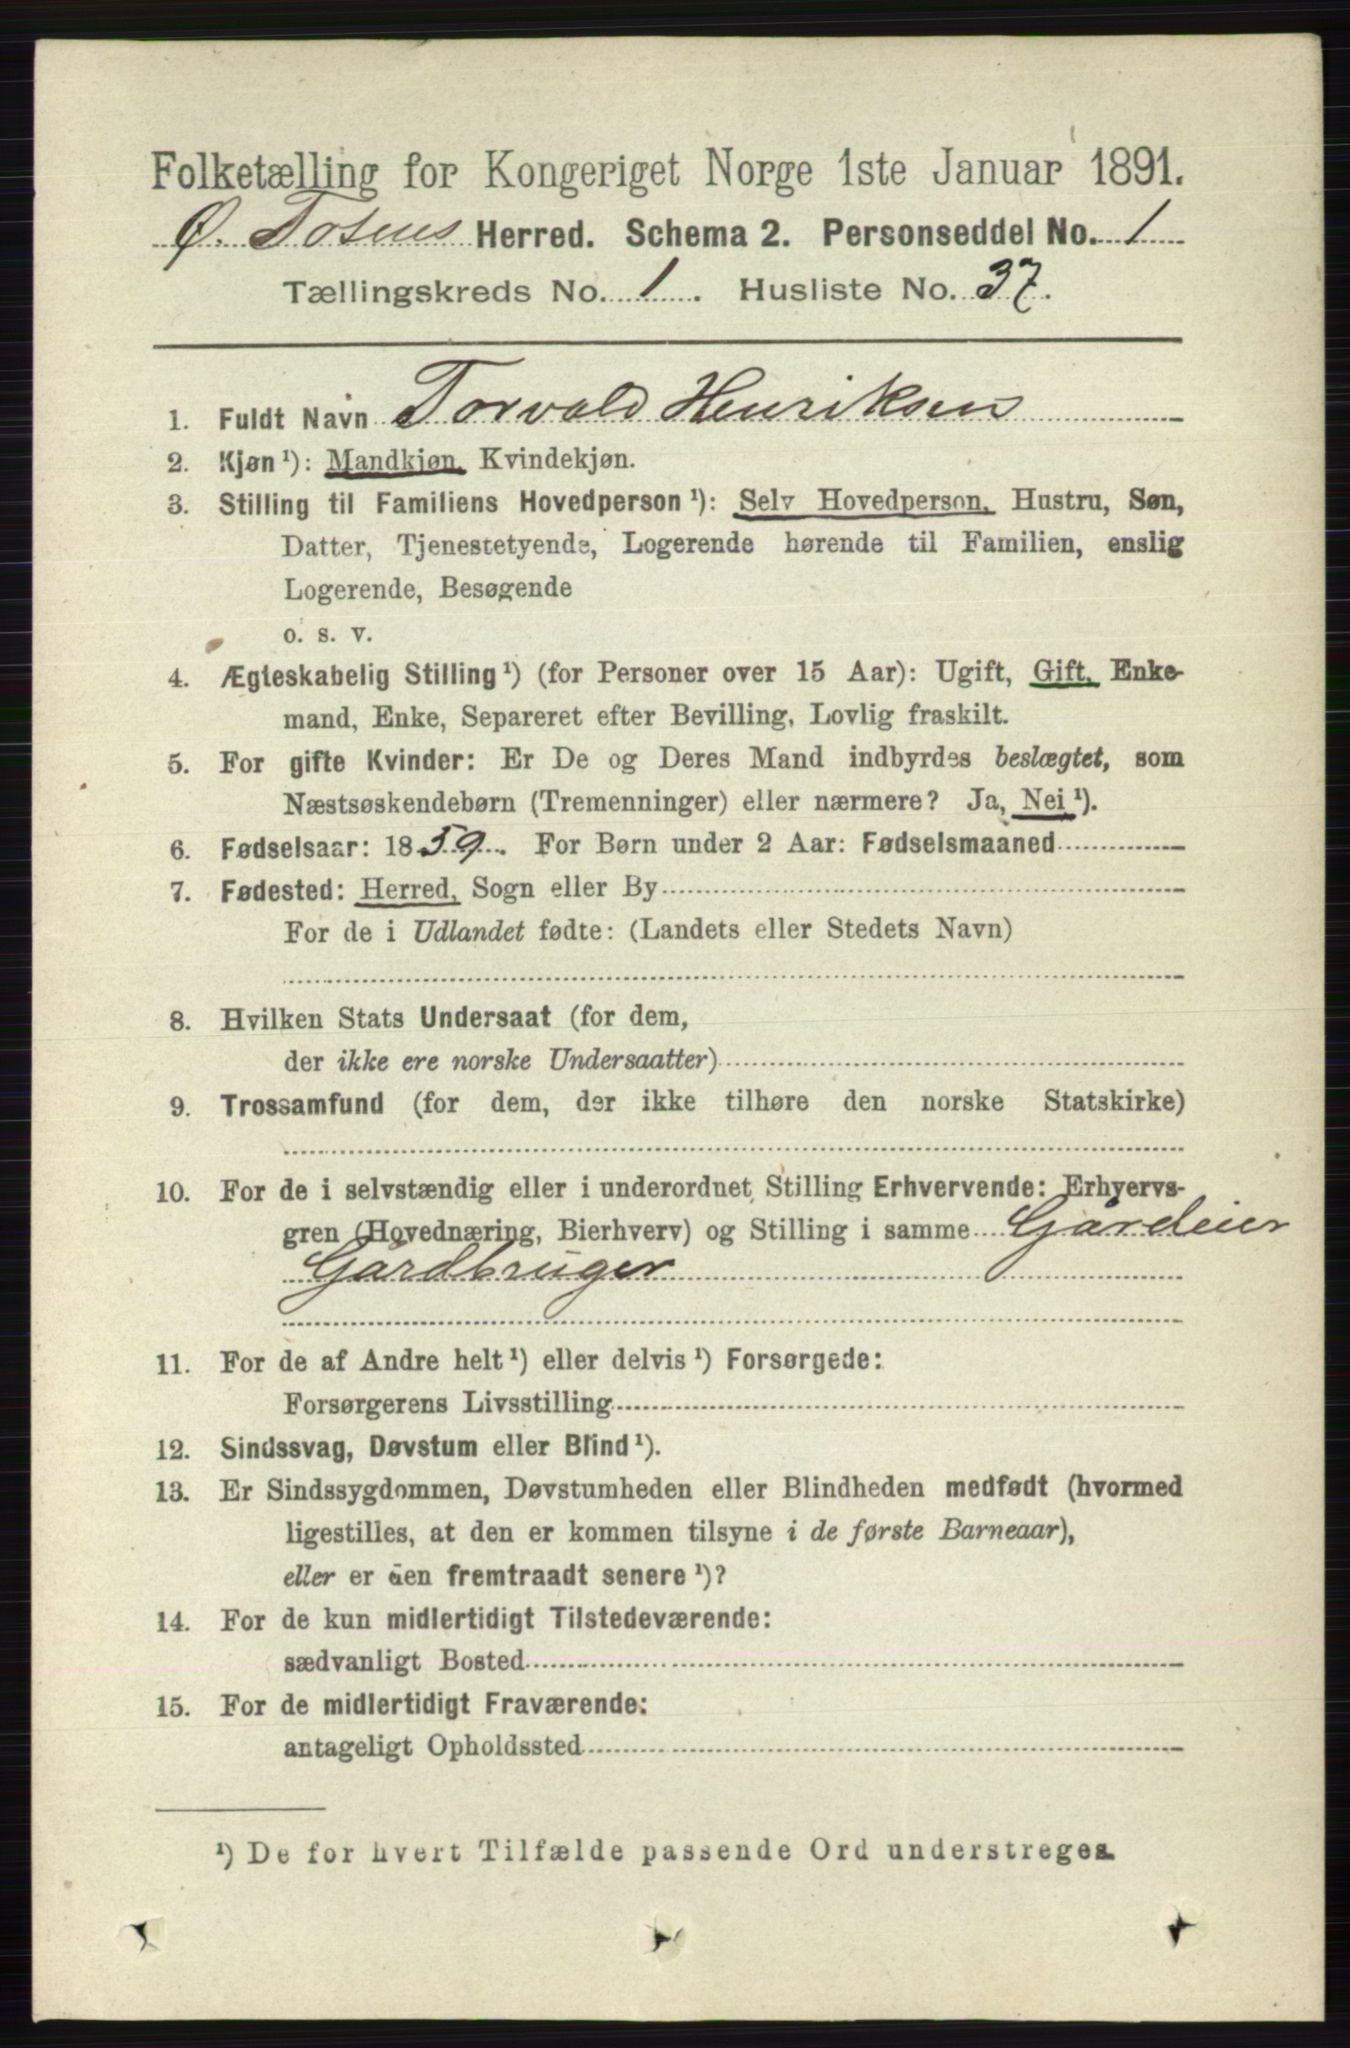 Folketælling for Kongeriget Norge 1ste Januar 1891.
Ø. Totens Herred. Schema 2. Personseddel No. 1
Tællingskreds No. 1. Husliste No. 37.
1. Fuldt Navn Torvald Henriksen
2. Kjøn¹): Mandkjøn, Kvindekjøn.
3. Stilling til Familiens Hovedperson¹): Selv Hovedperson, Hustru, Søn,
Datter, Tjenestetyende, Logerende hørende til Familien, enslig
Logerende, Besøgende
o. s. v.
4. Ægteskabelig Stilling¹) (for Personer over 15 Aar): Ugift, Gift, Enke-
mand, Enke, Separeret efter Bevilling, Lovlig fraskilt.
5. For gifte Kvinder: Er De og Deres Mand indbyrdes beslægtet, som
Næstsøskendebørn (Tremenninger) eller nærmere? Ja, Nei¹).
6. Fødselsaar: 1859. For Børn under 2 Aar: Fødselsmaaned
7. Fødested: Herred, Sogn eller By
For de i Udlandet fødte: (Landets eller Stedets Navn)
8. Hvilken Stats Undersaat (for dem,
der ikke ere norske Undersaatter)
9. Trossamfund (for dem, der ikke tilhøre den norske Statskirke)
10. For de i selvstændig eller i underordnet Stilling Erhvervende: Erhvervs-
gren (Hovednæring, Bierhverv) og Stilling i samme Gårdeier
Gårdbruger
11. For de af Andre helt¹) eller delvis¹) Forsørgede:
Forsørgerens Livsstilling
12. Sindssvag, Døvstum eller Blind¹).
13. Er Sindssygdommen, Døvstumheden eller Blindheden medfødt (hvormed
ligestilles, at den er kommen tilsyne i de første Barneaar),
eller er den fremtraadt senere¹)?
14. For de kun midlertidigt Tilstedeværende:
sædvanligt Bosted
15. For de midlertidigt Fraværende:
antageligt Opholdssted
¹) De for hvert Tilfælde passende Ord understreges.